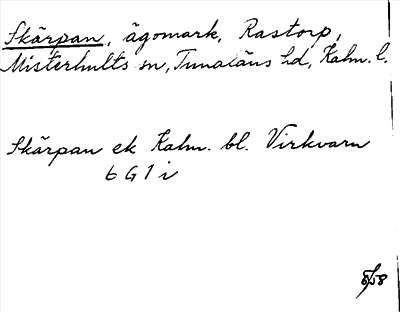 Skärpan, ägomark, Rastorp,
Misterhults sn, Tunaläns hd, Kalm. l.
Skärpan ek Kalm. bl. Virkvarn
6 G 1 i
8/58